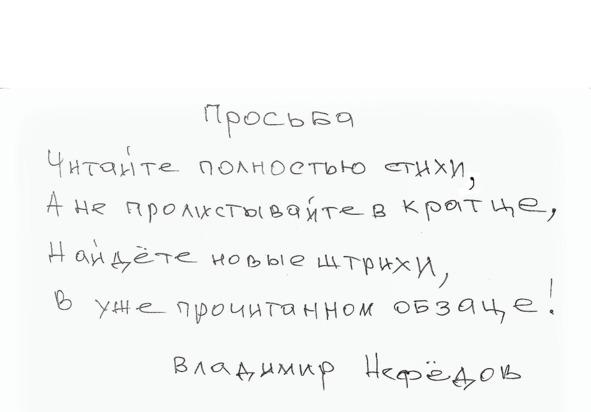 Просьба
Читайте полностью стихи,
А не пролистывайте в кратце,
Найдёте новые штрихи,
В уже прочитанном обзаце!
Владимир Нефёдов